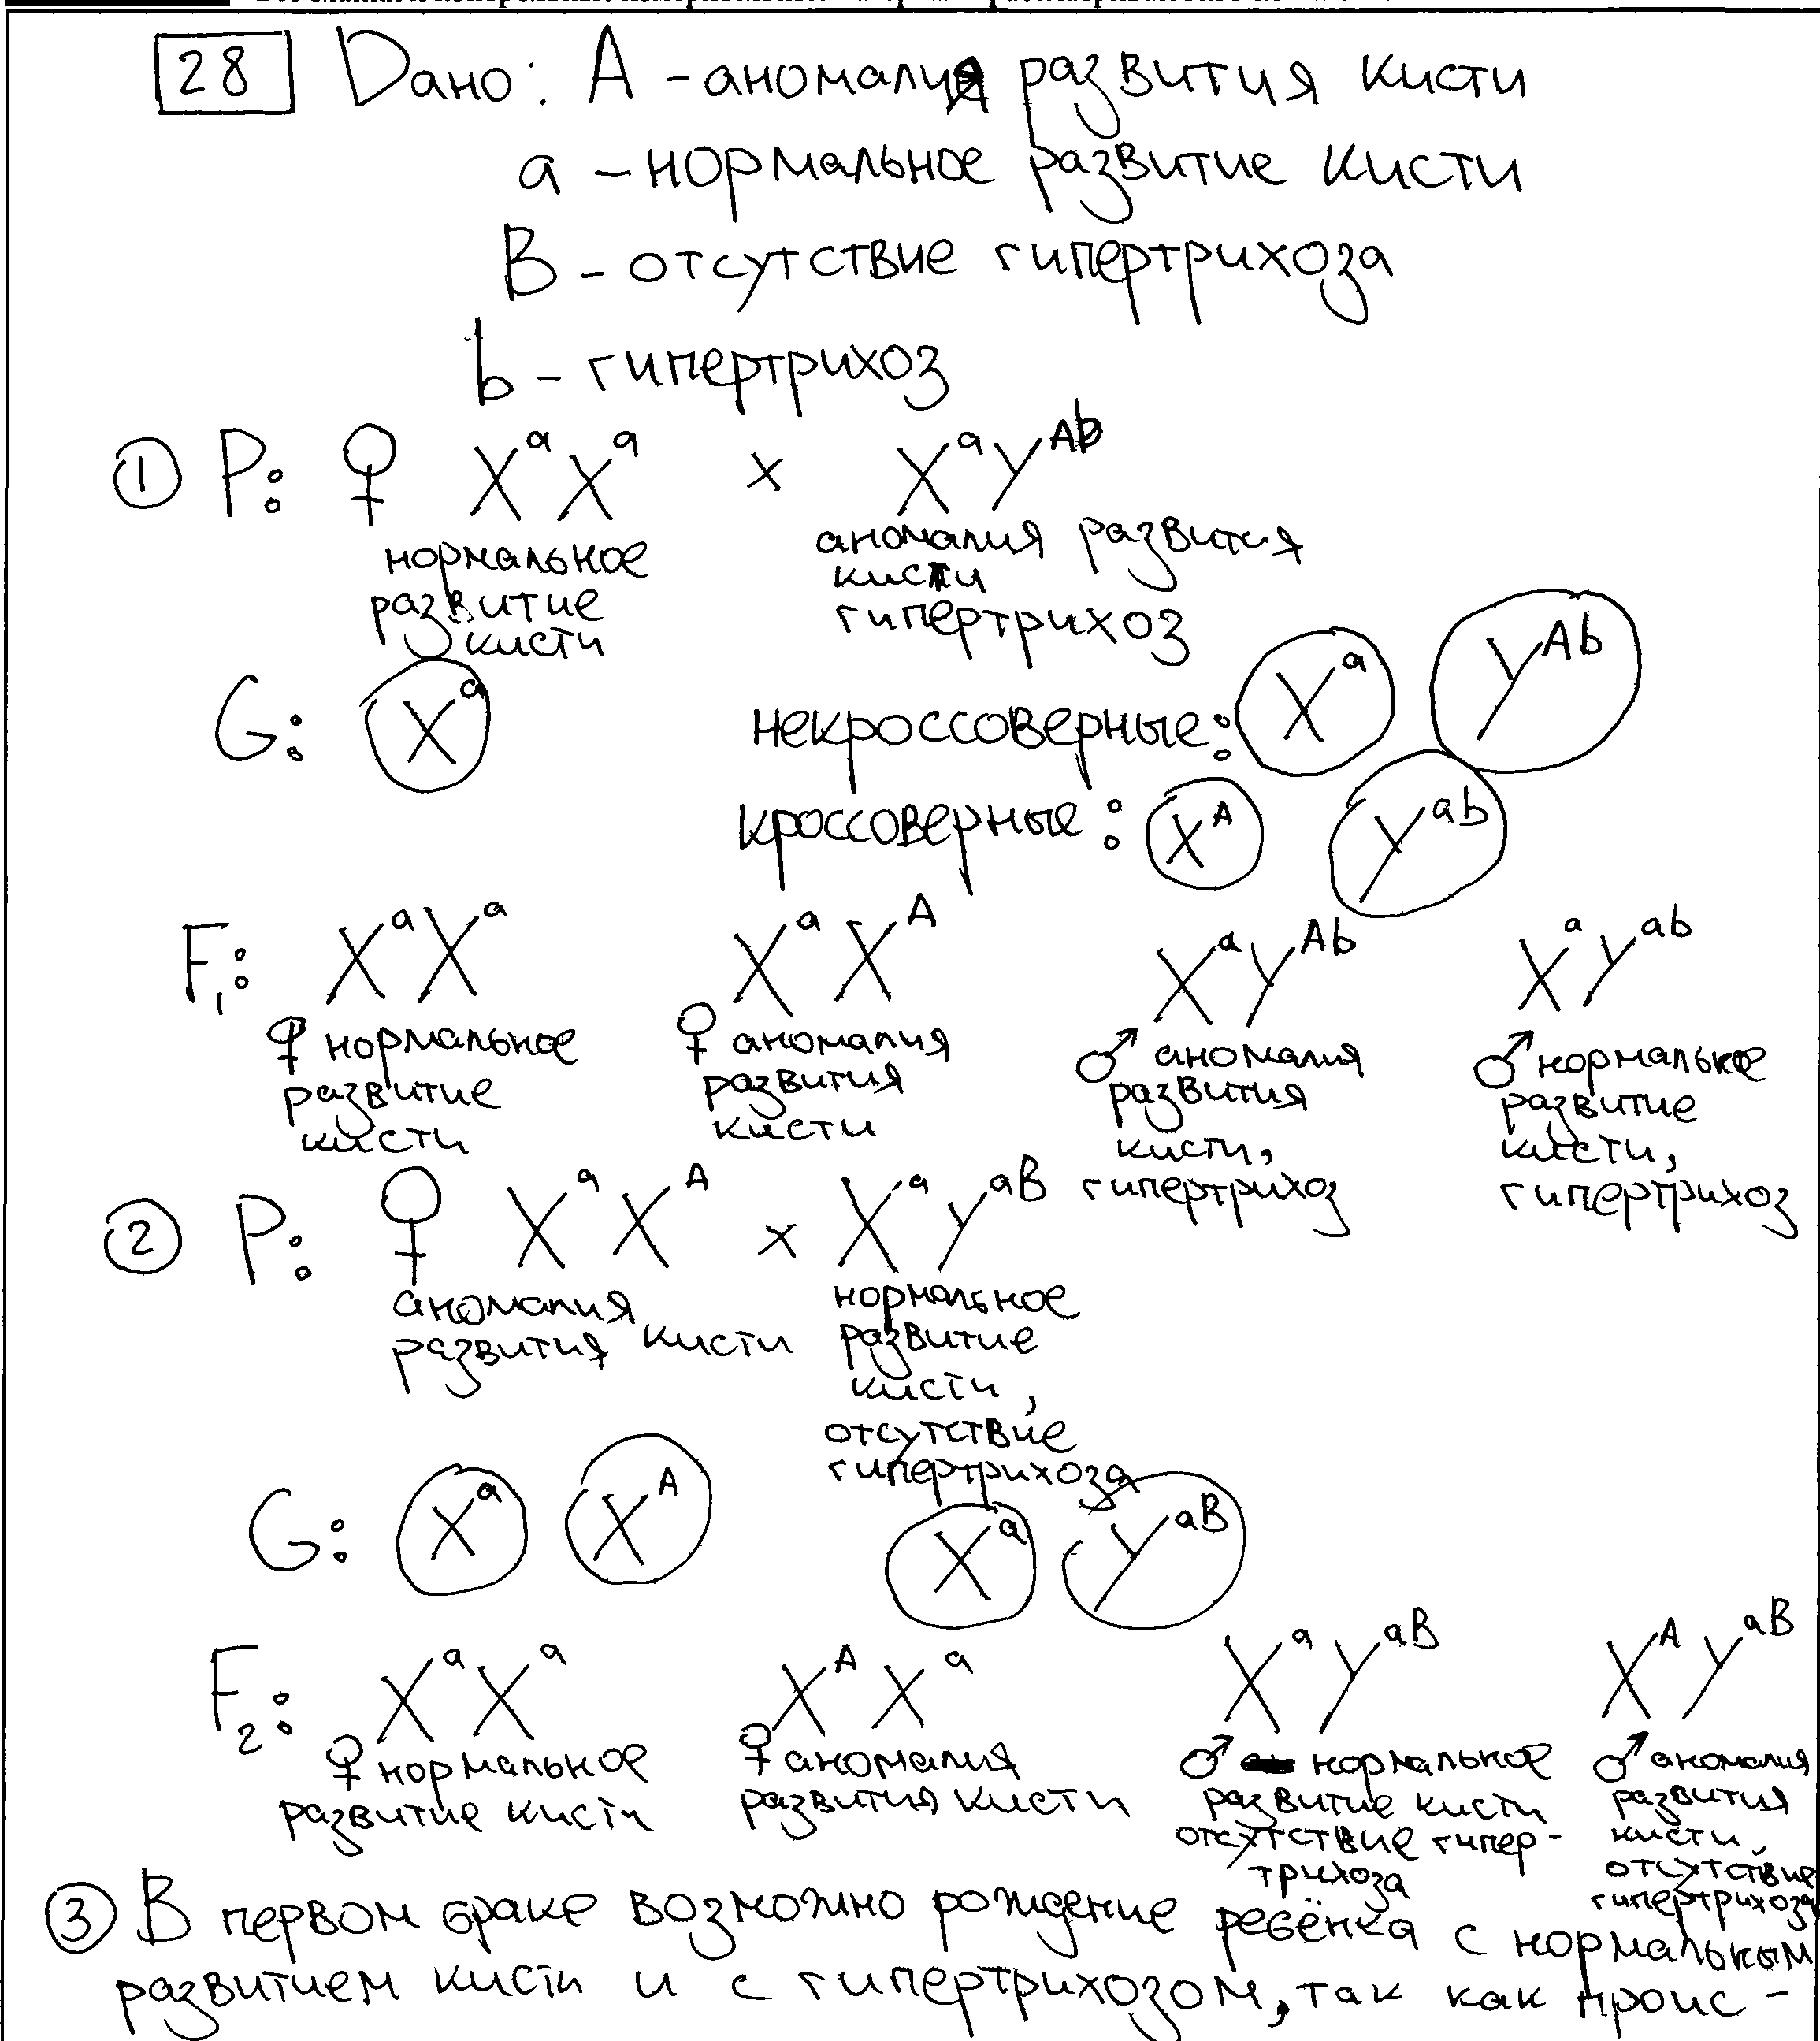 28 Дано: А - аномалия развития кисти
а - нормальное развитие кисти
В - отсутствие гипертрихоза
b - гипертрихоз
① P: ♀ XᵃXᵃ × XᵃYᴬᵇ
нормальное развитие кисти аномалия развития кисти гипертрихоз
G: Xᵃ некроссоверные: Xᵃ Yᴬᵇ
кроссоверные: Xᴬ Yᵃᵇ
F₁: XᵃXᵃ XᵃXᴬ XᵃYᴬᵇ XᵃYᵃᵇ
♀ нормальное развитие кисти ♀ аномалия развития кисти ♂ аномалия развития кисти, гипертрихоз ♂ нормальное развитие кисти, гипертрихоз
② P: ♀ XᵃXᴬ × XᵃYᵃᴮ
аномалия развития кисти нормальное развитие кисти, отсутствие гипертрихоза
G: Xᵃ Xᴬ Xᵃ Yᵃᴮ
F₂: XᵃXᵃ XᴬXᵃ XᵃYᵃᴮ XᴬYᵃᴮ
♀ нормальное развитие кисти ♀ аномалия развития кисти ♂ нормальное развитие кисти отсутствие гипер-трихоза ♂ аномалия развития кисти, отсутствие гипертрихоза
③ В первом браке возможно рождение ребёнка с нормальным
развитием кисти и с гипертрихозом, так как проис-